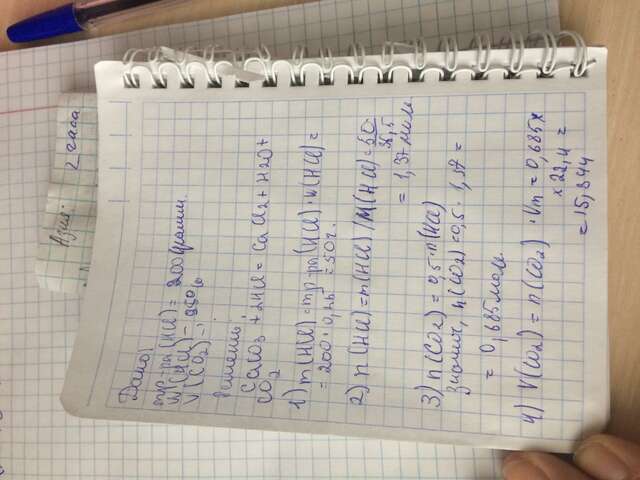 Азия:
2 часа
Дано:
mр-ра (HCl) = 200 грамм.
W(HCl) - 25%
V(CO2) - ?
Решение:
CaCO3 + 2HCl = CaCl2 + H2O +
CO2
1) m(HCl) = mр-ра(HCl) · w(HCl) =
= 200 · 0,25 = 50 г.
2) n(HCl) = m(HCl) / M(HCl) = 50/36,5
= 1,37 моль
3) n(CO2) = 0,5 · n(HCl)
значит, n(CO2) = 0,5 · 1,37 =
= 0,685 моль
4) V(CO2) = n(CO2) · Vm = 0,685 x
x 22,4 =
= 15,344